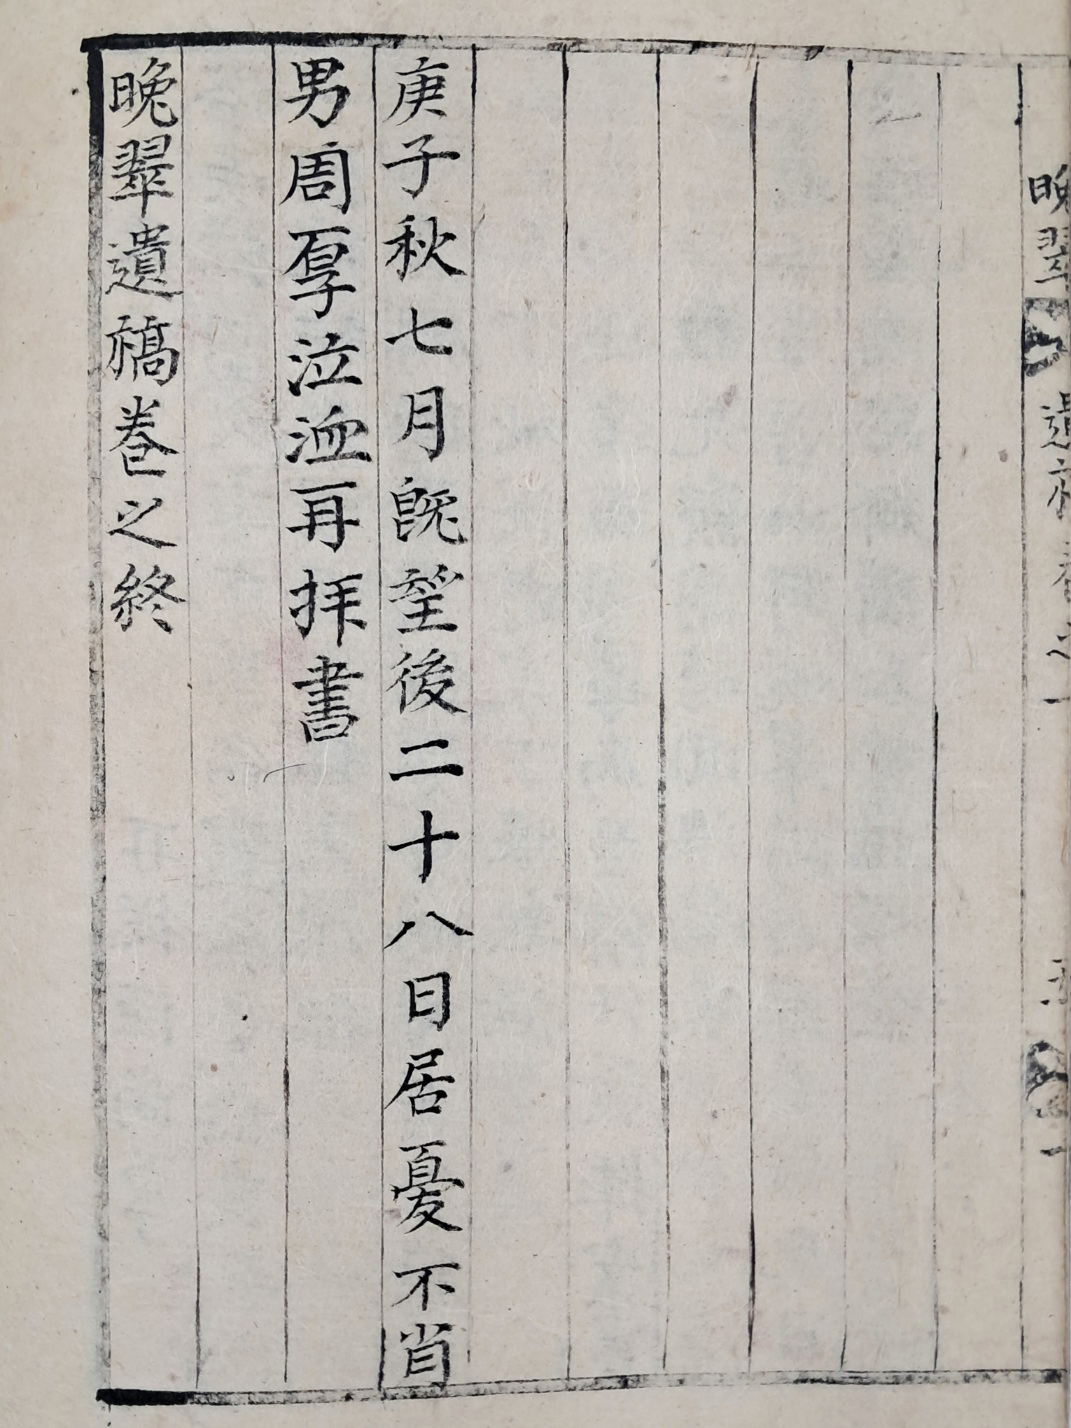 晚翠遺稿卷之一
庚子秋七月旣望後二十八日居憂不肖
男周厚泣血再拜書
晚翠遺稿卷之終